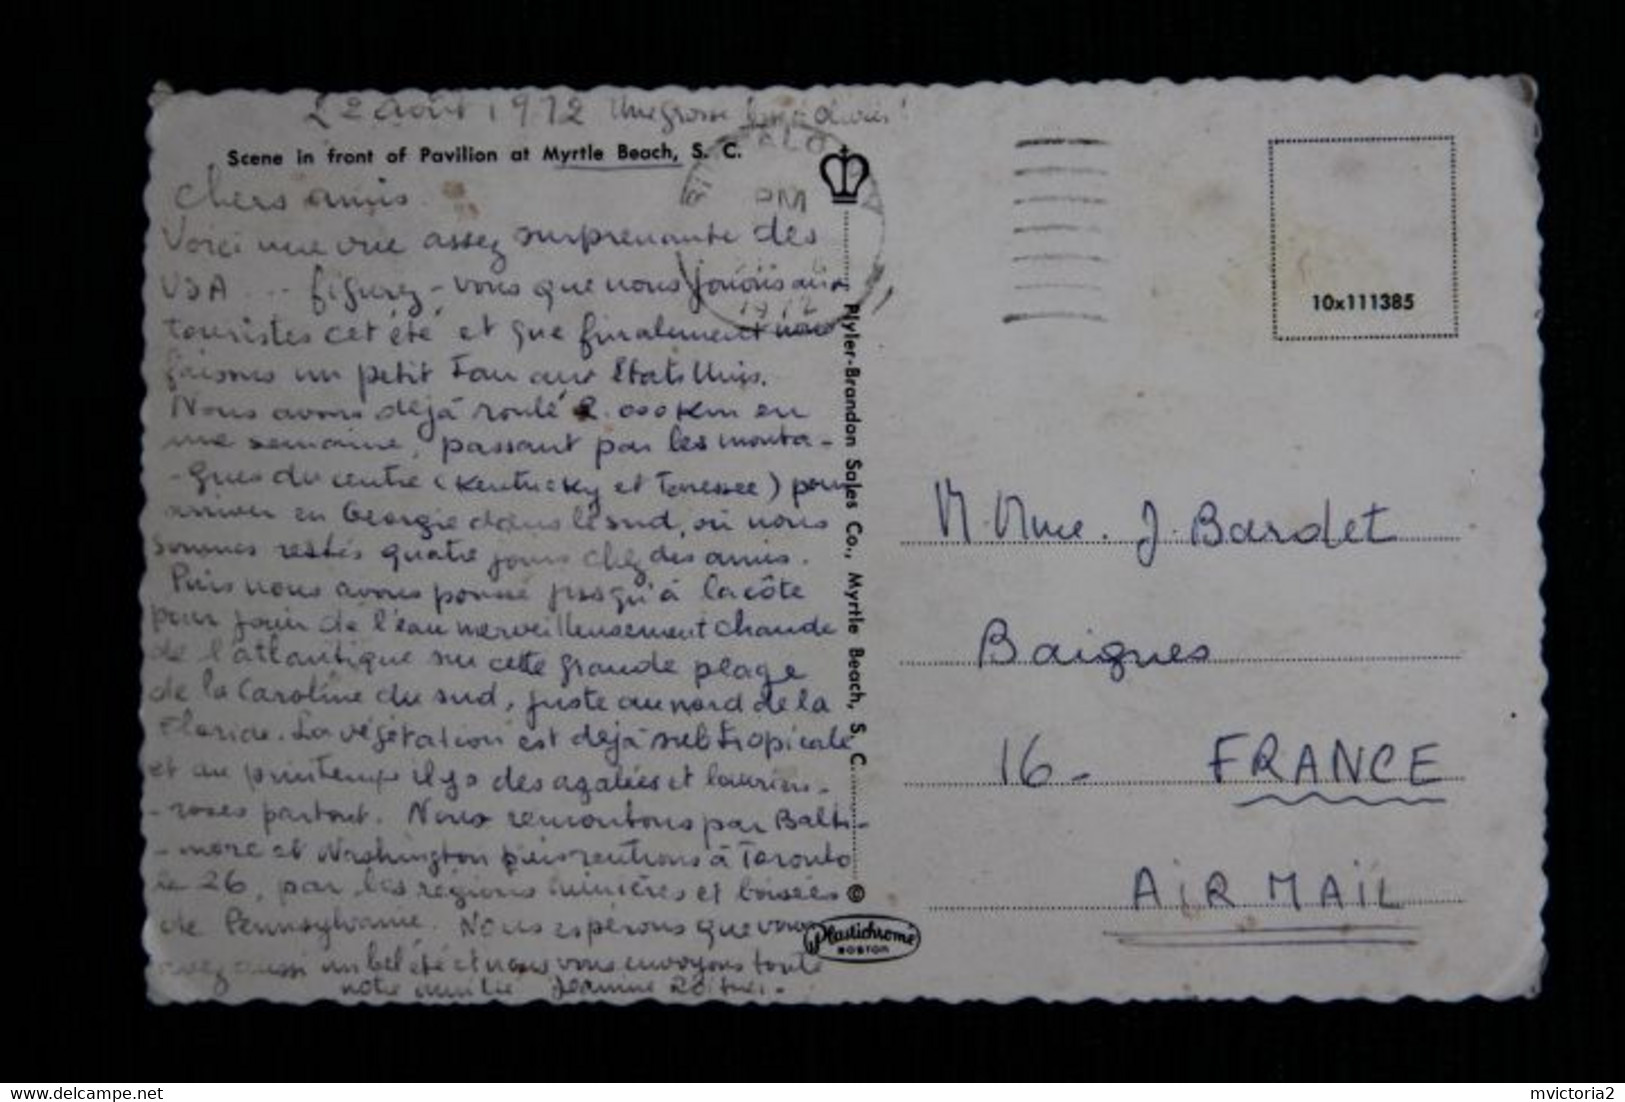 22 août 1972 Une grosse
Scene in front of Pavilion at Myrtle Beach, S. C.
PM
1972
chers amis.
Voici une vue assez surprenante des
USA ... figurez-vous que nous jouons aux
touristes cet été et que finalement nous
faisons un petit tour aux Etats Unis.
Nous avons déjà roulé 2.000 Km en
une semaine, passant par les monta-
-gnes du centre (Kentucky et Tenessee) pour
arriver en Georgie dans le sud, où nous
sommes restés quatre jours chez des amis.
Puis nous avons poussé jusqu'à la côte
pour jouir de l'eau merveilleusement chaude
de l'atlantique sur cette grande plage
de la Caroline du sud, juste au nord de la
Floride. La végétation est déjà subtropicale
et au printemps il y a des azalées et lauriers-
-roses partout. Nous remontons par Balti-
-more et Washington puis rentrons à Toronto
le 26, par les régions minières et boisées
de Pennsylvanie. Nous espérons que vous
avez aussi un bel été et nous vous envoyons toute
notre amitié Jeannine
Plyler-Brandon Sales Co., Myrtle Beach, S. C.
©
Plastichrome
BOSTON
10x111385
M. Mme. J. Bardet
Baignes
16- FRANCE
AIR MAIL
https://www.delcampe.net
mvictoria2